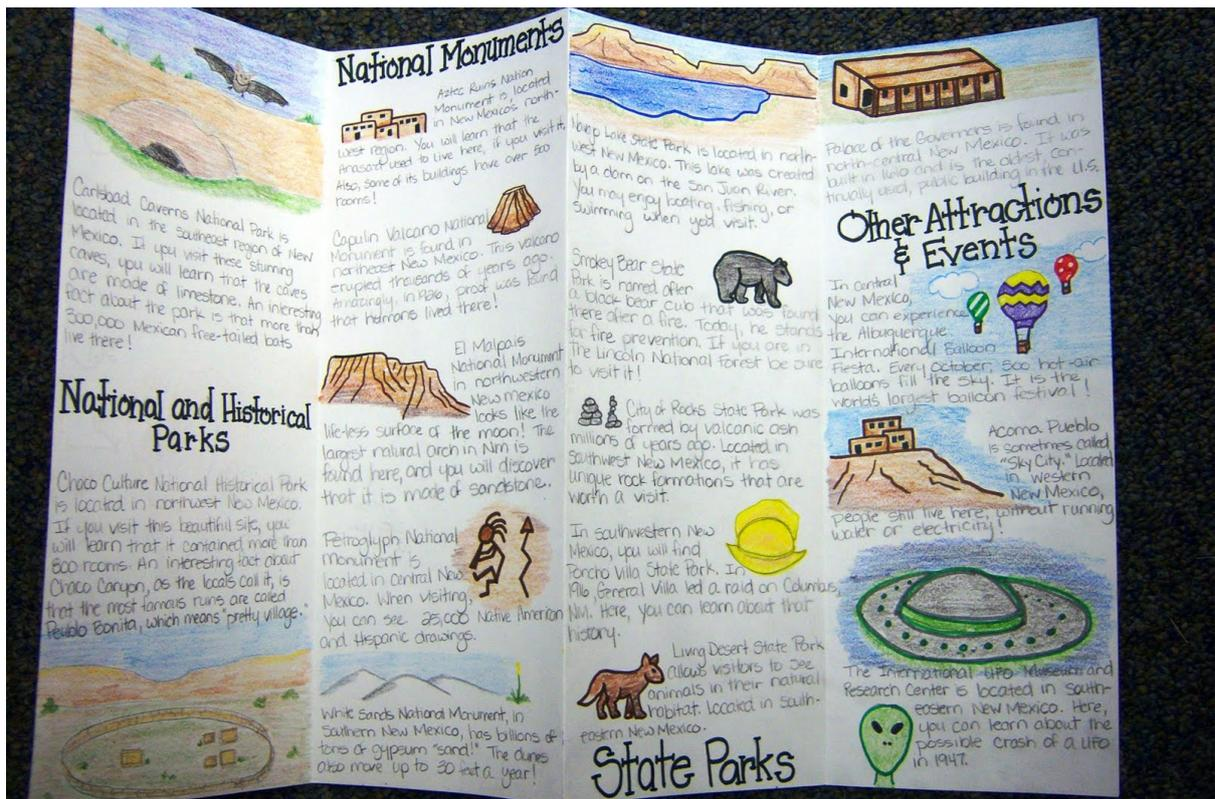 Carlsbad Caverns National Park is
located in the Southeast region of New
Mexico. If you visit these stunning
caves, you will learn that the caves
are made of limestone. An interesting
fact about the park is that more than
300,000 Mexican free-tailed bats
live there!
National and Historical
Parks
Chaco Culture National Historical Park
is located in northwest New Mexico.
If you visit this beautiful site, you
will learn that it contained more than
800 rooms. An interesting fact about
Chaco Canyon, as the locals call it, is
that the most famous ruins are called
Peublo Bonita, which means "pretty village."
National Monuments
Aztec Ruins Nation
Monument is located
in New Mexico's north-
west region. You will learn that the
Anasazi used to live here, if you visit it.
Also, some of its buildings have over 500
rooms!
Capulin Valcano National
Monument is found in
northeast New Mexico. This valcano
erupted thousands of years ago.
Amazingly, in 1926, proof was found
that humans lived there!
El Malpais
National Monument
in northwestern
New mexico
looks like the
life-less surface of the moon! The
largest natural arch in Nm is
found here, and you will discover
that it is made of sandstone.
Petroglyph National
monument is
located in central New
Mexico. When visiting,
you can see 25,000 Native American
and Hispanic drawings.
White Sands National Monument, in
Southern New Mexico, has billions of
tons of gypsum "sand!" The dunes
also move up to 30 feet a year!
Navajo Lake State Park is located in north-
west New Mexico. This lake was created
by a dam on the San Juan River.
You may enjoy boating, fishing, or
swimming when you visit.
Smokey Bear State
Park is named after
a black bear cub that was found
there after a fire. Today, he stands
for fire prevention. If you are in
the Lincoln National Forest be sure
to visit it!
City of Rocks State Park was
formed by valcanic ash
millions of years ago. Located in
Southwest New Mexico, it has
unique rock formations that are
worth a visit.
In southwestern New
Mexico, you will find
Poncho Villa State Park. In
1916, General Villa led a raid on Columbus,
NM. Here, you can learn about that
history.
Living Desert State Park
allows visitors to see
animals in their natural
habitat. Located in south-
eastern New Mexico.
State Parks
Palace of the Governors is found in
north-central New Mexico. It was
built in 1610 and is the oldest, con-
tinually used, public building in the U.S.
Other Attractions
& Events
In central
New Mexico,
you can experience
the Albuquerque
International Balloon
Fiesta. Every October, 500 hot-air
balloons fill the sky. It is the
worlds largest balloon festival!
Acoma Pueblo
is sometimes called
"Sky City." Located
in western
New Mexico,
people still live here, without running
water or electricity!
The International UFO Museum and
Research Center is located in South-
eastern New Mexico. Here,
you can learn about the
possible crash of a UFO
in 1947.